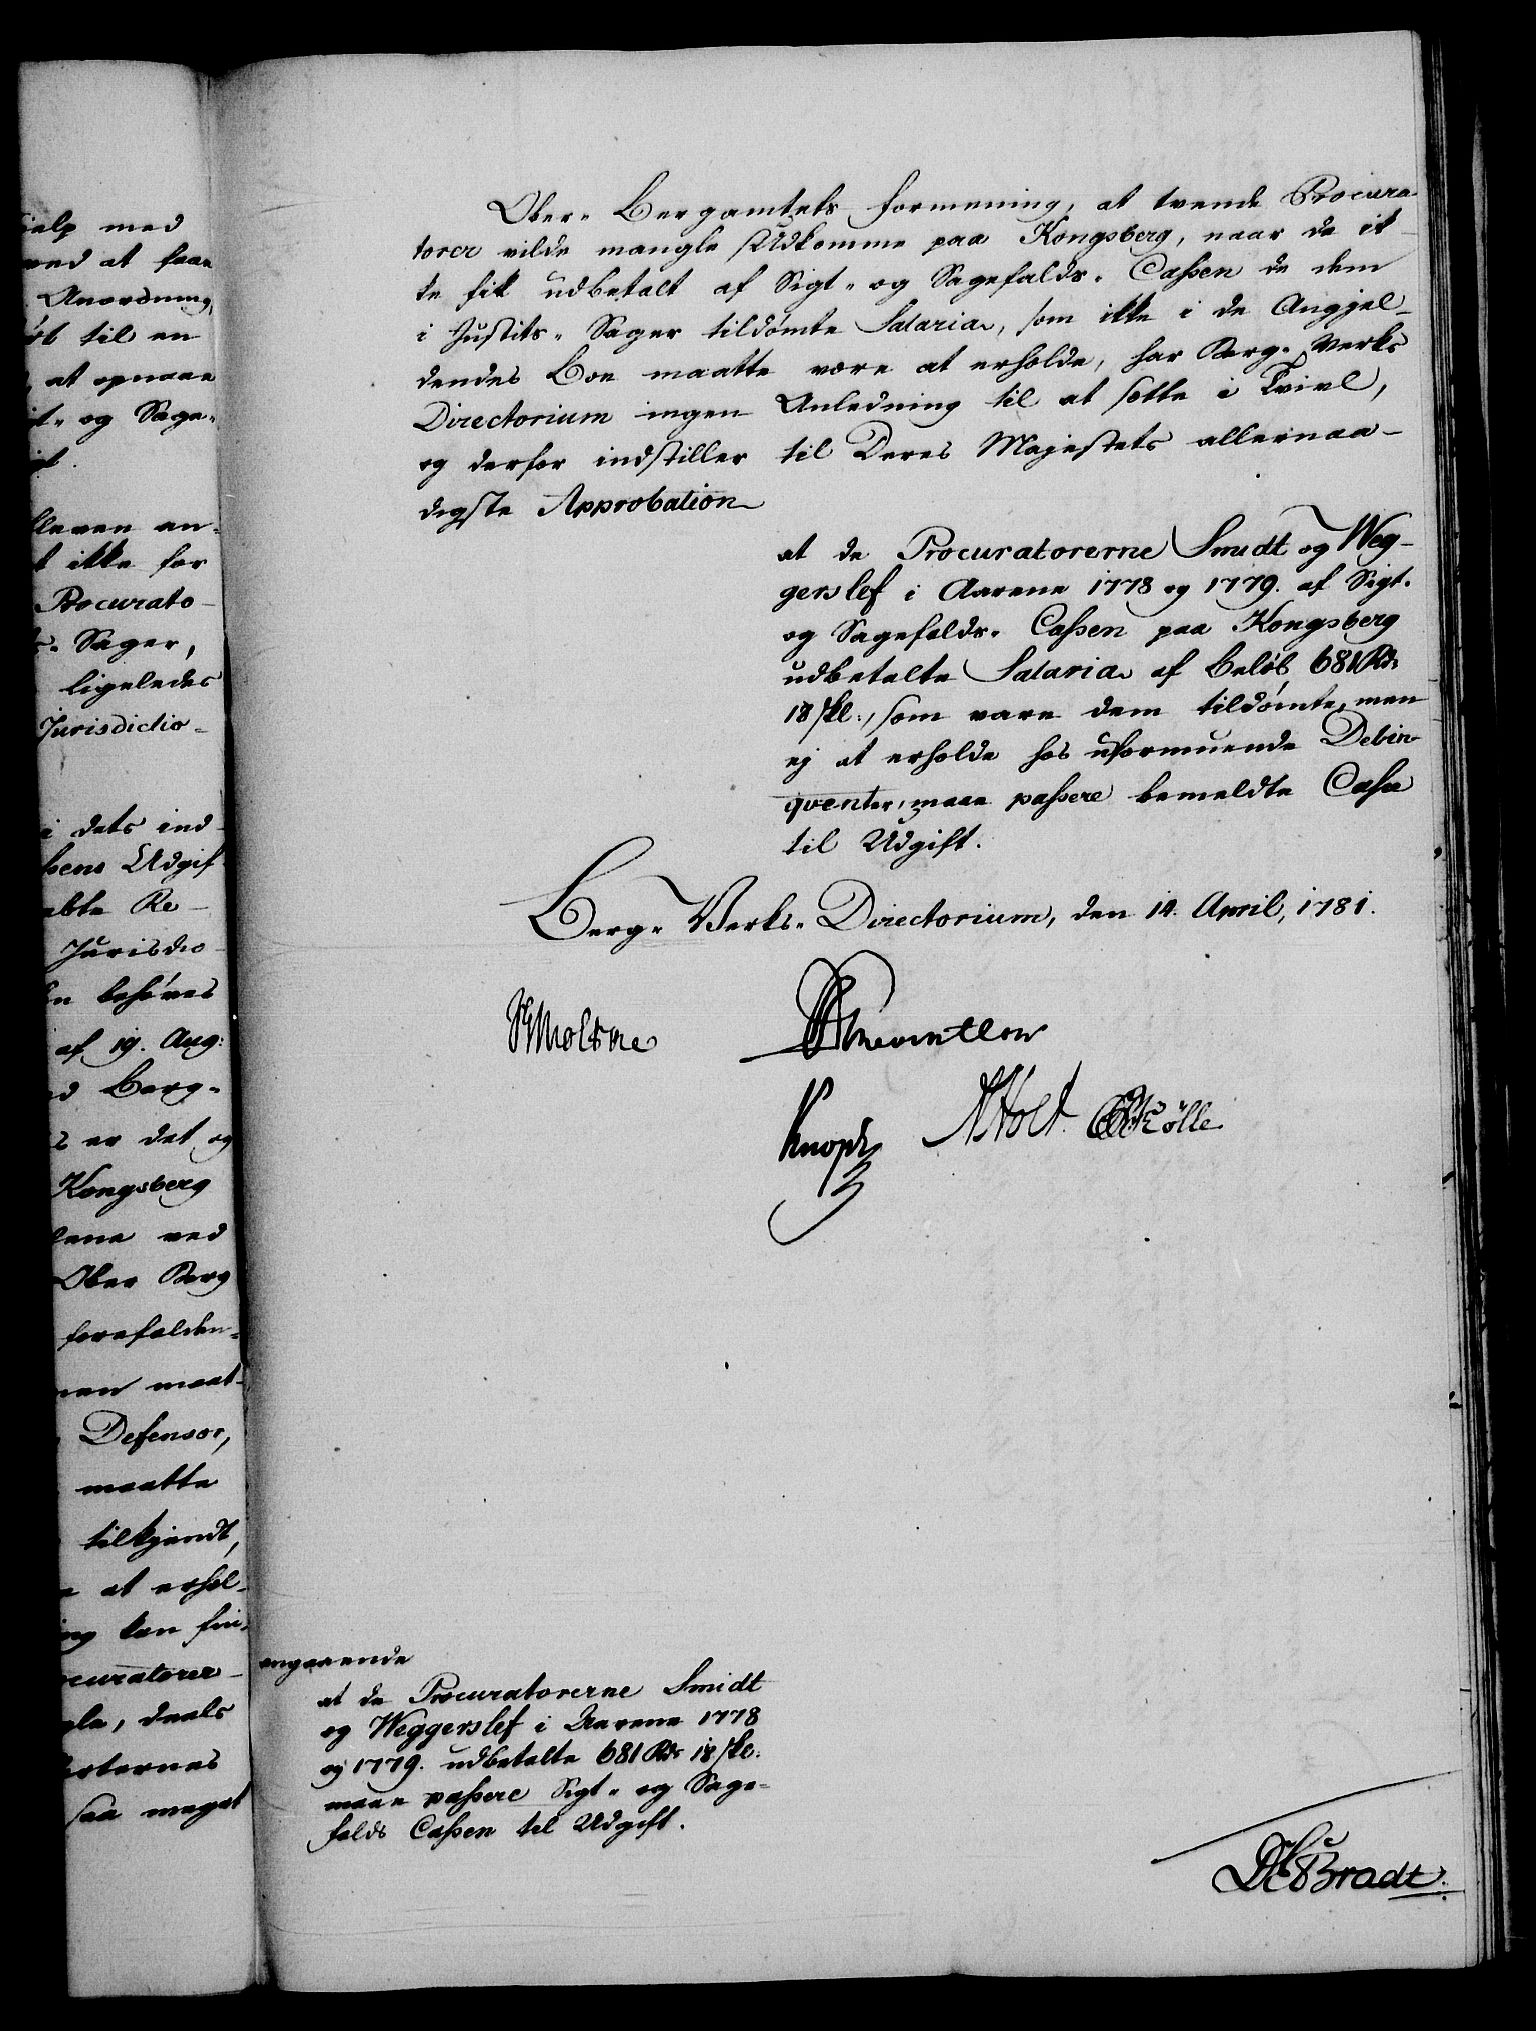 ielp med
ved at faae
Anordning,
til en
at opnaae
og Sage-
an-
ikke for
Procurato-
Sager,
ligeledes
Jurisdictio-
i dets ind-
Udgif-
Re-
Jurisdic-
behøves
af 19. Aug:
Berg-
er det og
Kongsberg
ved
Ober Berg
forefalden-
maat-
Defensor,
maatte
tilkjendt,
at erhol-
kan fin-
curatorer
deels
saa meget
Ober-Bergamtets formening, at tvende Procura-
torer vilde mangle Udkomme paa Kongsberg, naar de ik-
ke fik udbetalt af Sigt- og Sagefalds-Cassen de dem
i Justits-Sager tildømte Salaria, som ikke i de Angjel-
dendes Boe maatte være at erholde, har Berg-Verks
Directorium ingen Anledning til at sette i Tvivl,
og derfor indstiller til Deres Majestets allernaa-
digste Approbation
at de Procuratorerne Smidt og Weg-
gerslef i Aarene 1778 og 1779. af Sigt-
og Sagefalds-Cassen paa Kongsberg
udbetalte Salaria af beløb 681 Rdr
18 skl:, som vare dem tildømte, men
ej at erholde hos uformuende Delin-
qventer, maae passere bemeldte Casse
til Udgift.
Berg-Verks-Directorium, den 14. April, 1781.
Moltke Reventlow
Knoph Holt Rølle
angaaende
at de Procuratorerne Smidt
og Weggerslef i Aarene 1778
og 1779. udbetalte 681 Rdr 18 skl:
maae passere Sigt- og Sage-
falds Cassen til Udgift.
Bradt.